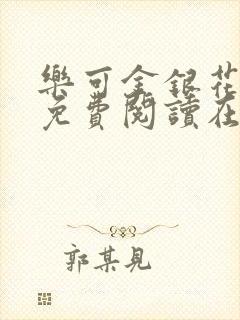 樂可金銀花
免費閱讀在
郭某見